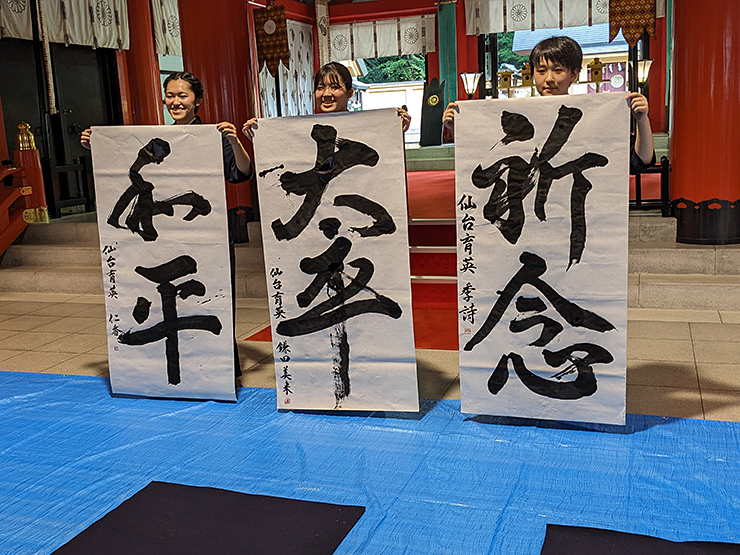 和平
仙台育英 仁香
太平
仙台育英 鎌田美来
祈念
仙台育英 季詩